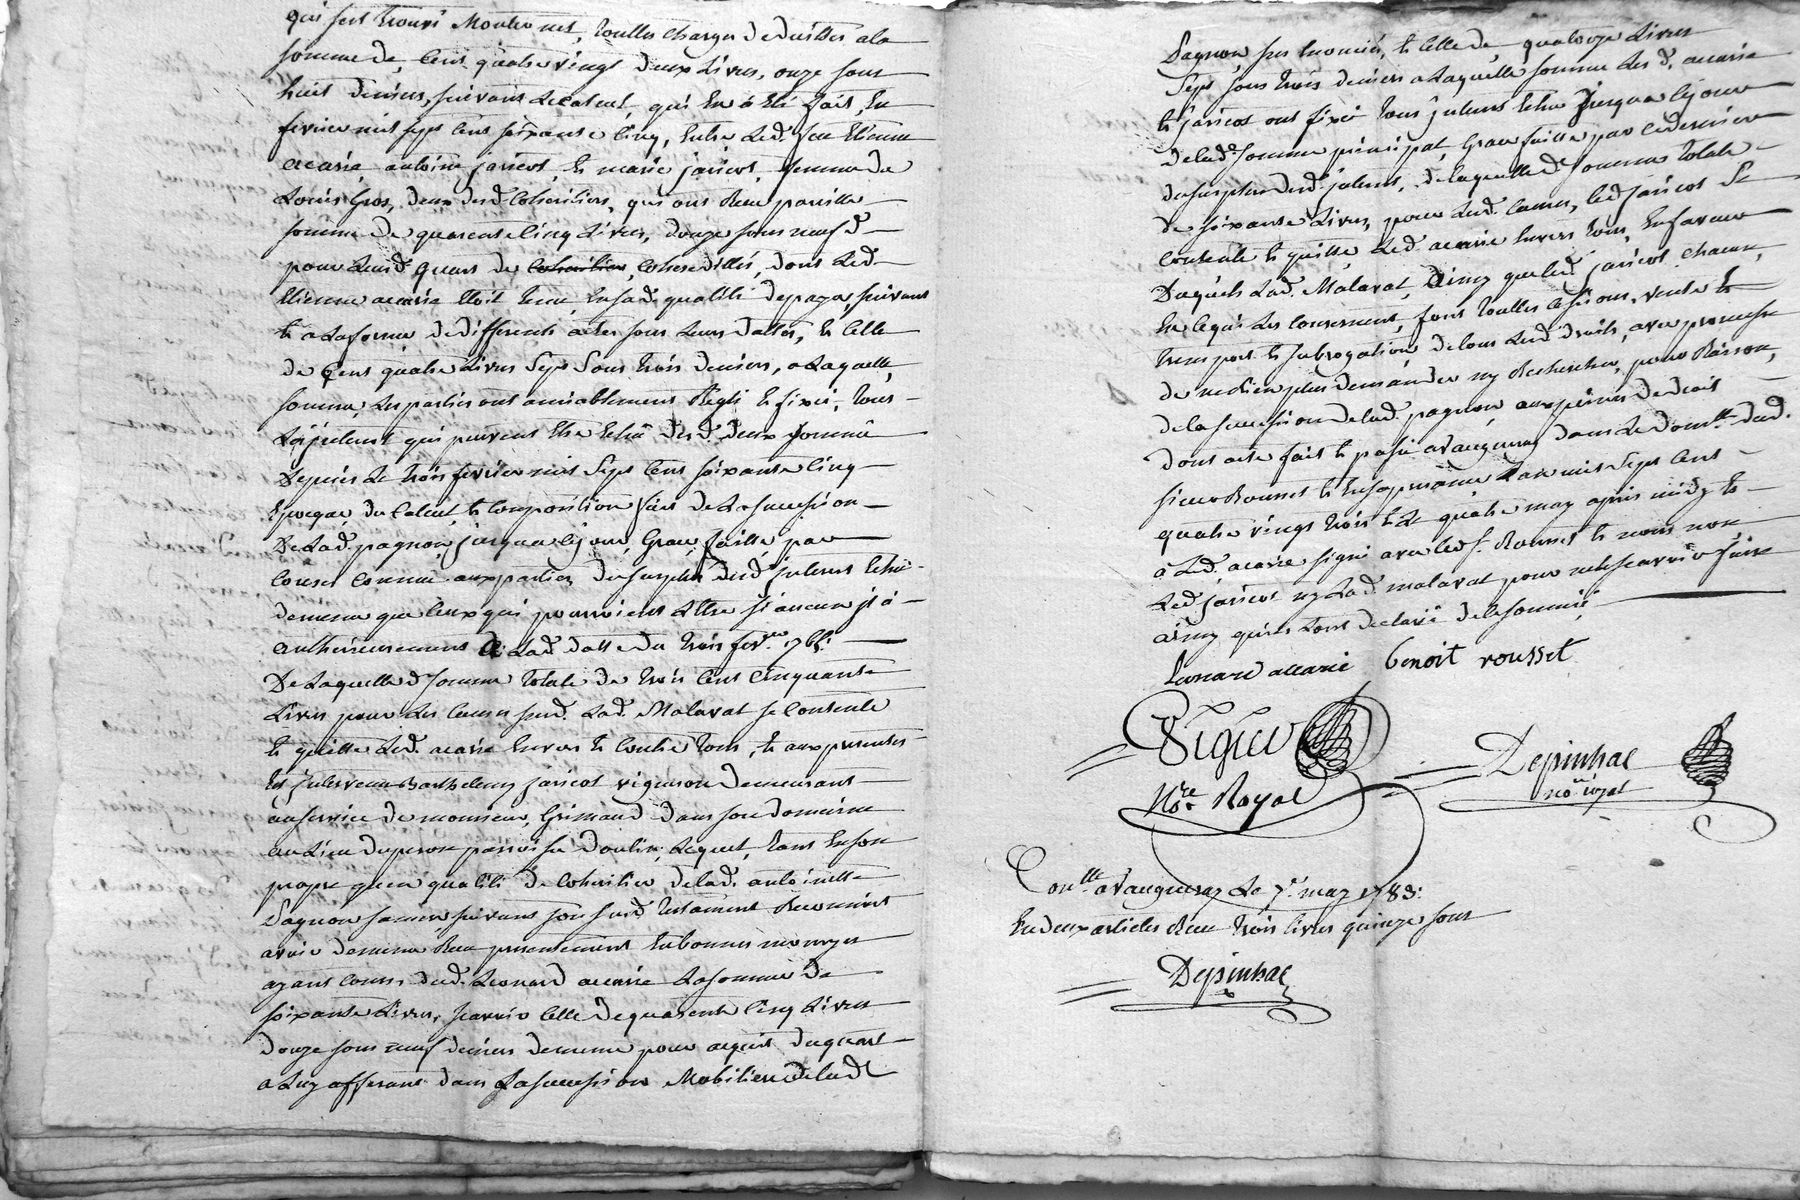 qui s'est trouvé monter net, touttes charges deduittes a la
somme de, cent quatre vingt deux Livres, onze sous
huit deniers, suivant Le calcul, qui en a eté fait, en
fevrier mil sept cent soixante cinq, entre led. feu Etienne
acarie, antoine jaricot, et marie jaricot, femme de
Louis Gros, deux desd. Coheritiers, qui ont Reçu pareille
somme de quarante cinq Livres, douze sous neuf d.
pour Leurd. quart de coheritiers, dont Led.
Etienne acarie etoit tenu, en sad. qualité de payer, suivant
et a La forme de differents actes sous Leurs dattes, et Celle
de Cent quatre Livres Sept Sous trois deniers, a Laquelle
somme, Les parties ont amiablement Reglé et fixé, tous
Les jnterets qui peuvent etre echus desd. deux sommes
Depuis Le trois fevrier mil Sept Cent soixante cinq
Epoque, du Calcul, et Composition fait de La succession
De Lad. pagnon, jusqu'a ce jour, Grace faitte, par
demême que Ceux qui pourroient Etre
anterieurement a Lad. datte du trois fevr. 1765.
De Laquelle d. somme totale de trois Cent Cinquante
Livres pour Les Causes susd. Lad. Malavat se Contente
et quitte Led. acarie envers et Contre tous, et aux presentes
Est jntervenu Barthelemy jaricot vigneron demeurant
au service de monsieur, Grimaud dans son domaine
au Lieu du peron parroisse d'oulin, Lequel, tant en son
propre qu'en qualité de Coheritier, de Lad. antoinette
Pagnon sa mere suivant son susd. testament Reconnoit
avoir demême Reçu presentement en bonnes monnoyes
ayant Cours, dud. Leonard acarie La somme de
soixante Livres, sçavoir Celle de quarante Cinq Livres
douze sous neuf deniers demême pour acquit du quart
a Luy afferant dans La succession Mobiliere de Lad.
Pagnon, sus enoncée, et Celle de quatorze Livres
Sept sous trois deniers a Laquelle somme Les d. acarie
et jaricot ont fixé tous jnterets echus jusqu'a ce jour
de Lad. somme principal, Grace faitte par ce dernier
du surplus desd. jnterets, de Laquelle d. somme totale
de soixante Livres, pour Lesd. Causes, Led. jaricot Se
Contente et quitte Led. acarie envers tous, en faveur
Duquel Lad. Malavat, Ainsy que Led. jaricot chacun,
En ce qui Les Concernent, font touttes Cessions, vente et
transport et subrogation de tous Leurd. droits, avec promesse
de ne Rien plus demander ny Rechercher, pour Raison,
de La succession de Lad. pagnon, aux peines de droit
Dont acte fait et passé a Vaugneray dans Le dom.lle dud.
sieur Rousset et en sa presence L'an mil Sept Cent
quatre vingt trois et Le quatre may après midy et
a Led. acarie signé avec led. s.r Rousset et nous non
Led. jaricot ny Lad. malavat pour ne le sçavoir faire
ainsy qu'ils L'ont declaré de ce sommés
Leonard acarie benoit rousset
Viguier Depinhac
No.re Royal no.re royal
Con.lle a Vaugneray Le 7 may 1783:
En deux articles Reçu trois livres quinze sous
Depinhac